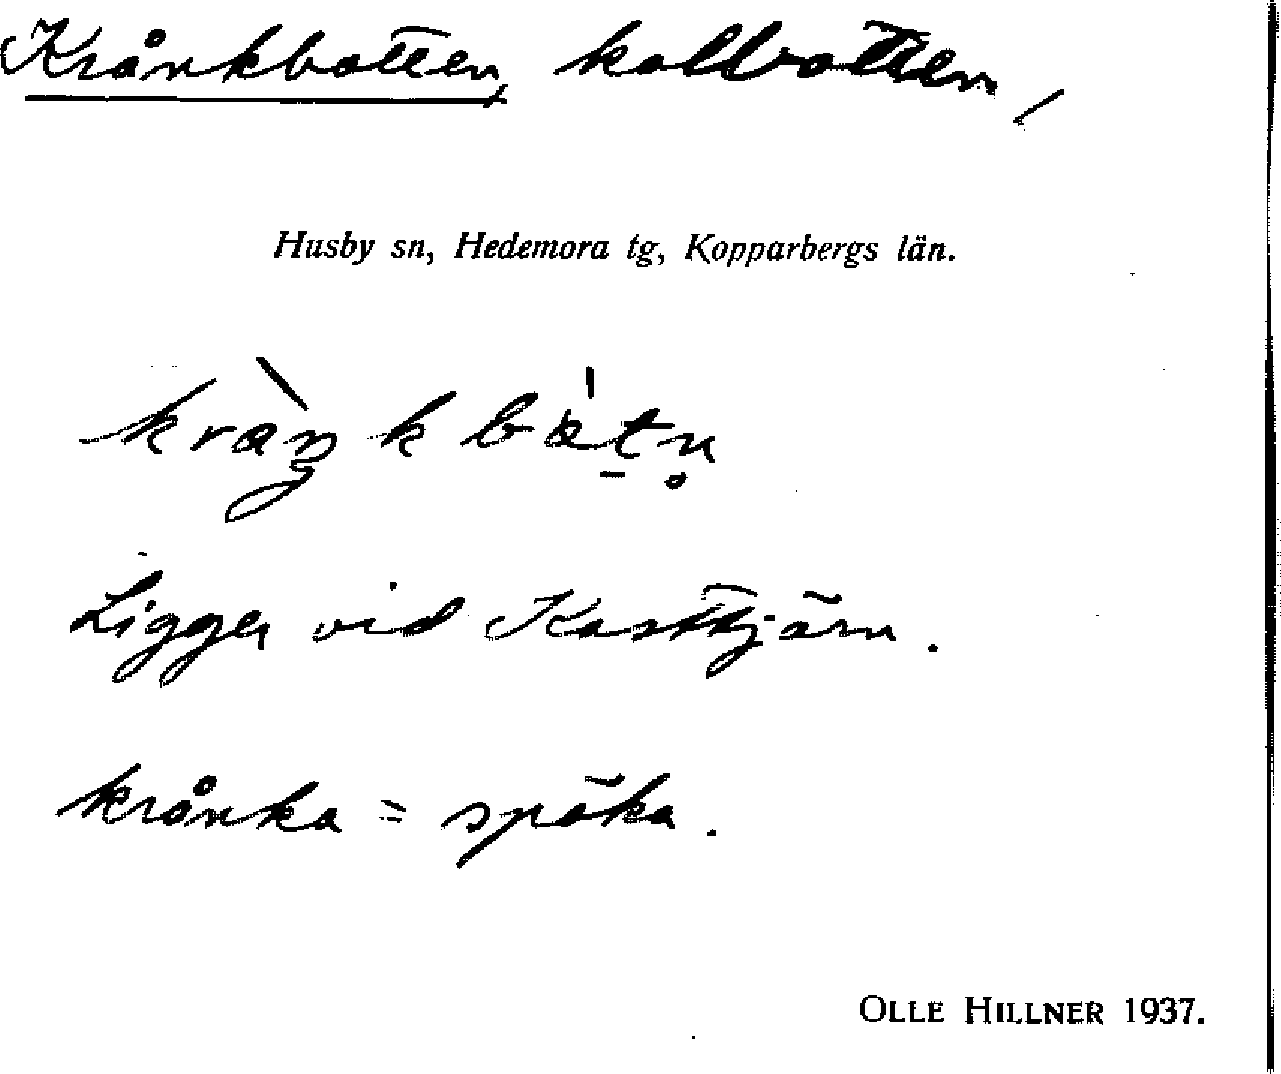 Krånkbotten, kolbotten,
Husby sn, Hedemora tg, Kopparbergs län.
Ligger vid Kasttjärn.
krånka = spöka.
OLLE HILLNER 1937.